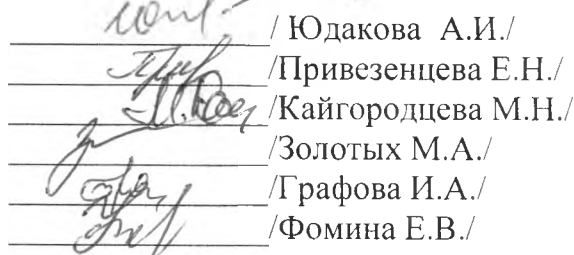 / Юдакова А.И./
/Привезенцева Е.Н./
/Кайгородцева М.Н./
/Золотых М.А./
/Графова И.А./
/Фомина Е.В./